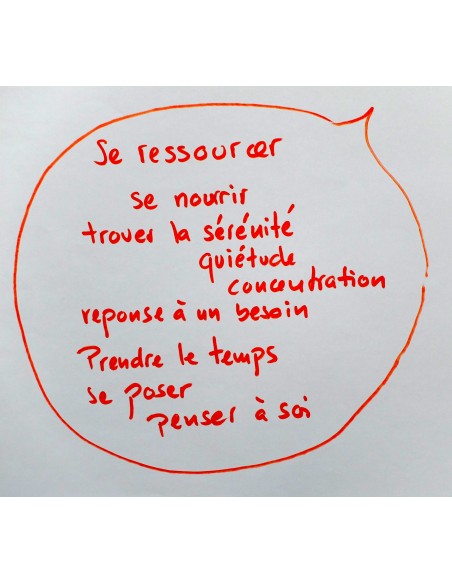 Se ressourcer
se nourrir
trouver la sérénité
quiétude
concentration
reponse à un besoin
Prendre le temps
se poser
penser à soi